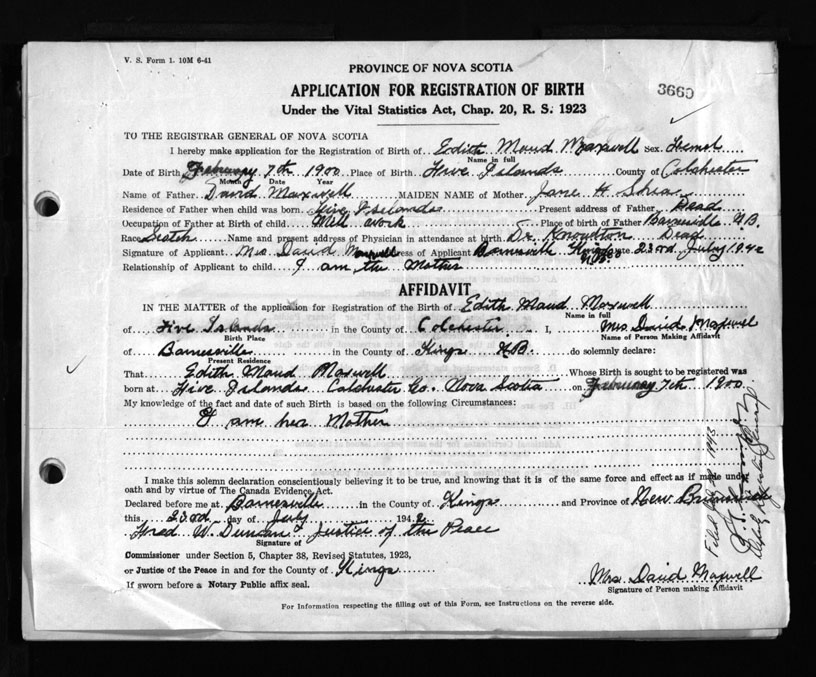 V. S. Form 1. 10M 6-41
PROVINCE OF NOVA SCOTIA
APPLICATION FOR REGISTRATION OF BIRTH
3660
Under the Vital Statistics Act, Chap. 20, R. S. 1923
TO THE REGISTRAR GENERAL OF NOVA SCOTIA
I hereby make application for the Registration of Birth of Edith Maud Maxwell Sex
Name in full
Date of Birth February 7th 1900 Place of Birth Five Islands County of Colchester
Month Date Year
Name of Father David Maxwell MAIDEN NAME of Mother Jane H
Residence of Father when child was born Five Islands Present address of Father Dead
Occupation of Father at Birth of child Mill work Place of birth of Father Barnesville N.B.
Race Scotch Name and present address of Physician in attendance at birth Dr. Dead
Signature of Applicant Mrs David Maxwell Address of Applicant Barnesville Kings N.B. Date 23rd July 1942
Relationship of Applicant to child I am the Mother
AFFIDAVIT
IN THE MATTER of the application for Registration of the Birth of Edith Maud Maxwell
Name in full
of Five Islands in the County of Colchester I, Mrs. David Maxwell
Birth Place Name of Person Making Affidavit
of Barnesville in the County of Kings N.B. do solemnly declare:
Present Residence
That Edith Maud Maxwell Whose Birth is sought to be registered was
born at Five Islands Colchester Co. Nova Scotia on February 7th 1900
My knowledge of the fact and date of such Birth is based on the following Circumstances:
I am her Mother
I make this solemn declaration conscientiously believing it to be true, and knowing that it is of the same force and effect as if made under
oath and by virtue of The Canada Evidence Act.
Declared before me at Barnesville in the County of Kings and Province of New Brunswick
this 23rd day of July 1942
Fred W. Duncan Justice of the Peace
Signature of
Commissioner under Section 5, Chapter 38, Revised Statutes, 1923,
or Justice of the Peace in and for the County of Kings
If sworn before a Notary Public affix seal.
Mrs. David Maxwell
Signature of Person making Affidavit
For Information respecting the filling out of this Form, see Instructions on the reverse side.
Filed 1943